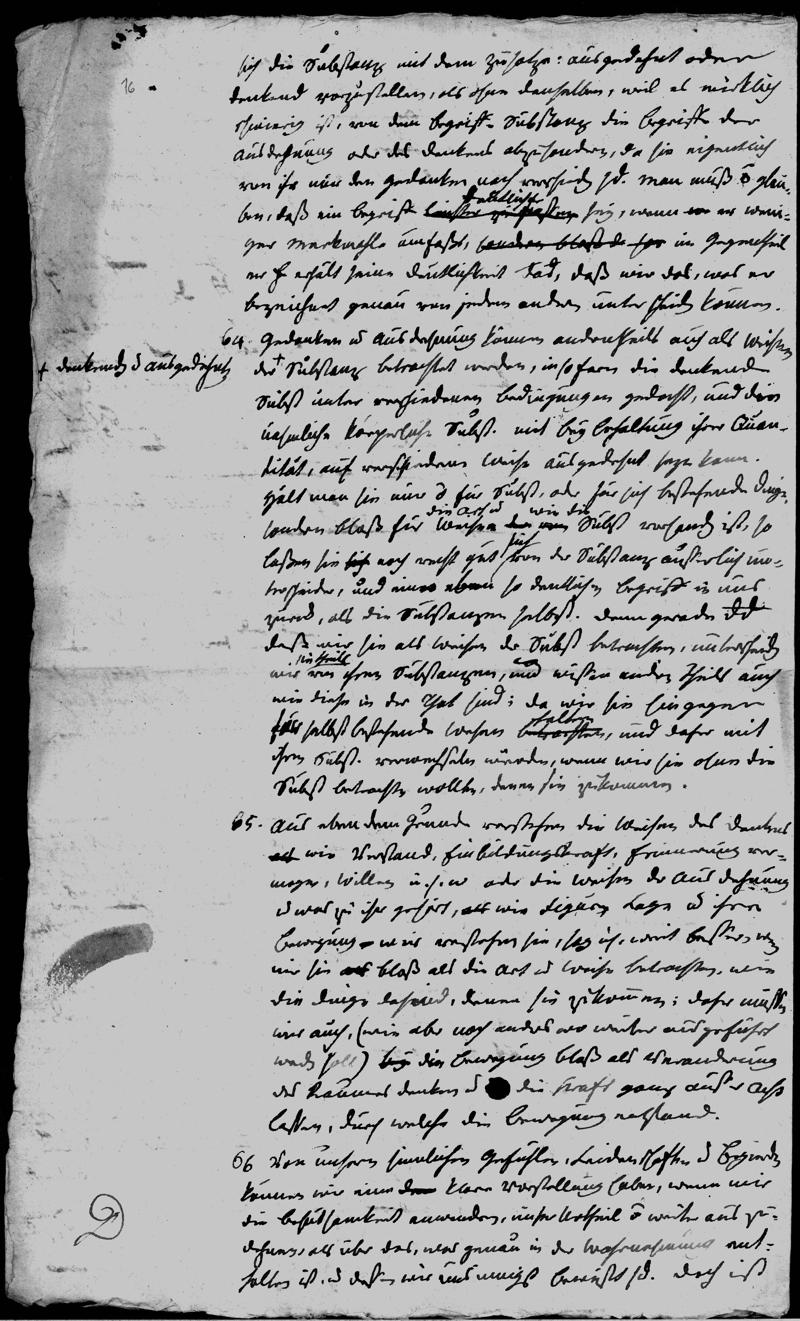 16
sich die Substanz mit dem zusatze: ausgedehnt oder
denkend vorzustellen, als ohne denselben, weil es wirklich
schwierig ist, von dem begriffe Substanz die begriffe der
ausdehnung oder des denkens abzusondern, da sie eigentlich
von ihr nur den gedanken nach verschied sd. man muß glau-
ben, daß ein begriff deutlicher sey, wenn er weni-
ger Merkmahle umfaßt, sondern blos im Gegentheil
er erhält seine deutlichkeit dad, daß wir das, was er
bezeichnet genau von jedem andern unterscheiden können.
64. Gedanken u Ausdehnung können andentheils auch als Weisen
+ denkende u ausgedehnte
der + Substanz betrachtet werden, insofern die denkende
Subst unter verschiedenen bedingungen gedacht, und die
nehmliche körperliche Subst. mit beybehaltung ihrer Quan-
tität, auf verschiedene Weise ausgedehnt seyn kann.
Hält man sie nur für Subst, oder für sich bestehende dinge,
sondern bloß für die art u Weisen wie die Subst vorhanden ist, so
laßen sie sich noch recht gut von der Substanz äusserlich un-
terscheiden, und einen eben so deutlichen begriff in uns
zurück, als die Substanzen selbst. denn gerade dd
daß wir sie als weisen der Subst betrachten, unterscheiden
wir sie theils von ihren Substanzen, und wissen andern theils auch
wie diese in der That sind; da wir sie hingegen
für selbst bestehende wesen halten, und daher mit
ihren Subst. verwechseln würden, wenn wir sie ohne die
Subst betrachten wollten, denen sie zukommen.
65. Aus eben dem Grunde verstehen die Weisen des denkens
wie Verstand, Einbildungskraft, Erinnerung ver-
mögen, Willen u.s.w oder die weisen der Ausdehnung
u was zu ihr gehört, wie Figuren Lage u ihre
bewegung wir verstehen sie, sag ich, weit besser, wen
wir sie bloß als die Art u Weise betrachten, wie
die dinge da sind, denen sie zukommen; daher müssen
wir auch, (wie aber noch anderswo weiter ausgeführt
werden soll) bey die bewegung bloß als Veränderung
des Raumes denken u die Kraft ganz ausser acht
lassen, durch welche die bewegung entstand.
66 Von unsern sinnlichen Gefühlen, Leidenschaften u Begierden
können wir eine klare Vorstellung haben, wenn wir
die behutsamkeit anwenden, unser Urtheil weiter aus zu-
dehnen, als über das, was genau in der Wahrnehmung ent-
halten ist. u dessen wir uns innigst bewußt sd. doch ist
D